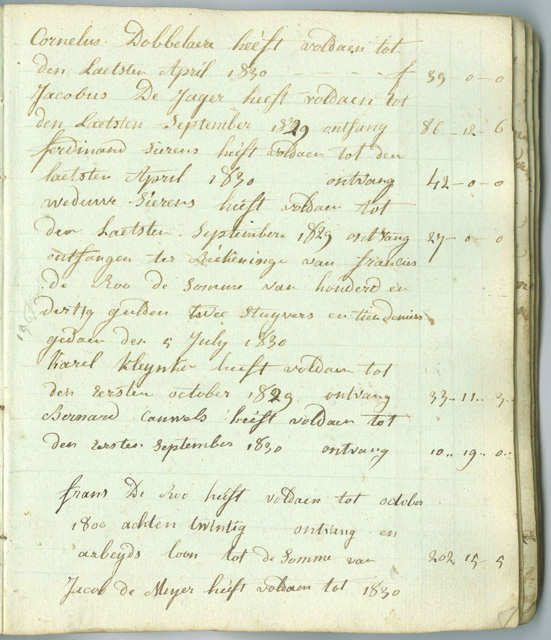 Cornelus Dobbelaere heeft voldaen tot
den Laetsten April 1830 - - - f 39-0-0
Jacobus De Jager heeft voldaen tot
den Laetsten September 1829 ontfang 86-12-6
ferdinand Sierens heeft voldaen tot den
laetsten April 1830 ontvang 42-0-0
weduwe Sierens heeft voldaen tot
den Laetsten September 1829 ontvang 27-0-0
ontfangen ter Reekeninge van francus
De Roo de Somme van honderd en
dertig gulden twee Stuyvers en tien deniers
gedaen den 5 July 1830
Karel Kleynker heeft voldaen tot
den Eersten october 1829 ontvang 33-11-3
Bernard Cauwels heeft voldaen tot
den Eersten September 1830 ontvang 10..19..0
frans De Roo heeft voldaen tot october
1800 achten twintig ontvang en
arbeyds loon tot de Somme van 202 15-5
Jacob de Meyer heeft voldaen tot 1830